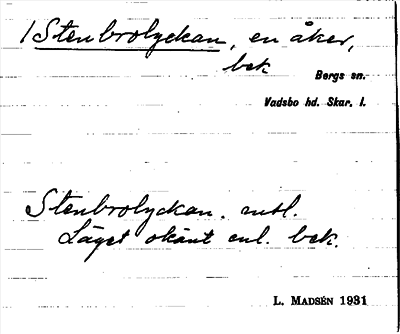 1 Stenbrolyckan, en åker,
bek
Bergs sn.
Vadsbo hd. Skar. l.
Stenbrolyckan. mtl.
Läget okänt enl. bek.
L. MADSÉN 1931